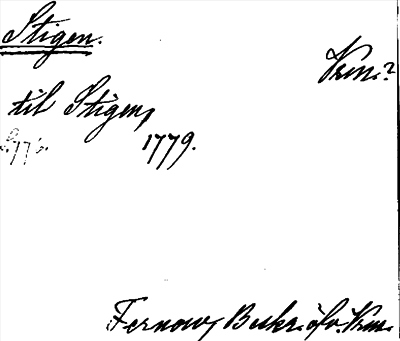 Stigen.
Vrm.?
til Stigen,
1779.
Fernow, Beskr. öfv. Vrm.